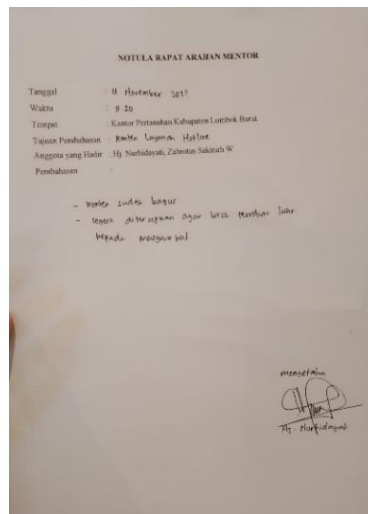 NOTULA RAPAT ARAHAN MENTOR
Tanggal : November
Waktu : 20
Tempat : Kantor Pertanahan Kabupaten Lombok Barat
Tujuan Pembahasan : Konten Layanan Hotline
Anggota yang Hadir : Hj. Nurhidayati, Zahrotus Sakinah W
Pembahasan :
- Konten sudah bagus
- segera diterapkan agar bisa
kepada masyarakat
mengetahui
Hj. Nurhidayati